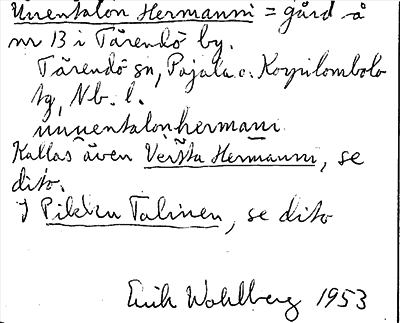 Unentalon Hermanni = gård å
nr 13 i Tärendö by.
Tärendö sn, Pajala o. Korpilombolo
tg, Nb. l.
unnentalon hermani
Kallas även Versta Hermanni, se
dito.
J Pikku Talinen, se dito
Erik Wahlberg 1953